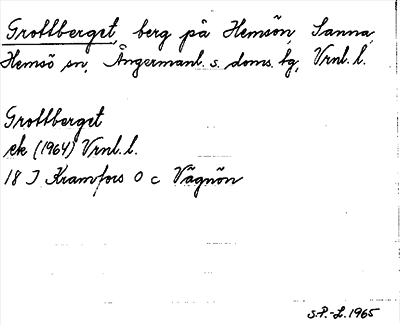 Grottberget, berg på Hemsön, Sanna,
Hemsö sn, Ångermanl. s. doms. tg, Vrnl. l.
Grottberget
ek (1964) Vrnl. l.
18 J Kramfors 0 c Vägnön
S.P.-L. 1965